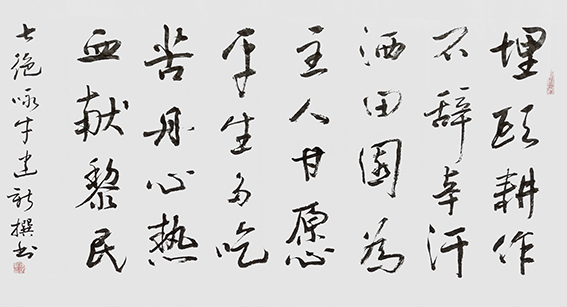 埋頭耕作
不辞辛汗
洒田園為
主人甘愿
平生多吃
苦丹心热
血献黎民
七绝咏牛建新撰书